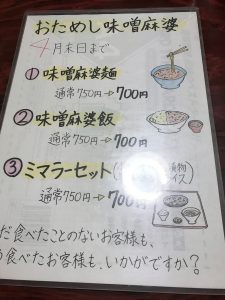 おためし味噌麻婆
4月末日まで
① 味噌麻婆麺
通常750円→700円
② 味噌麻婆飯
通常750円→700円
③ ミマラーセット(
通常750円→700円
だ食べたことのないお客様も、
食べたお客様も、いかがですか?